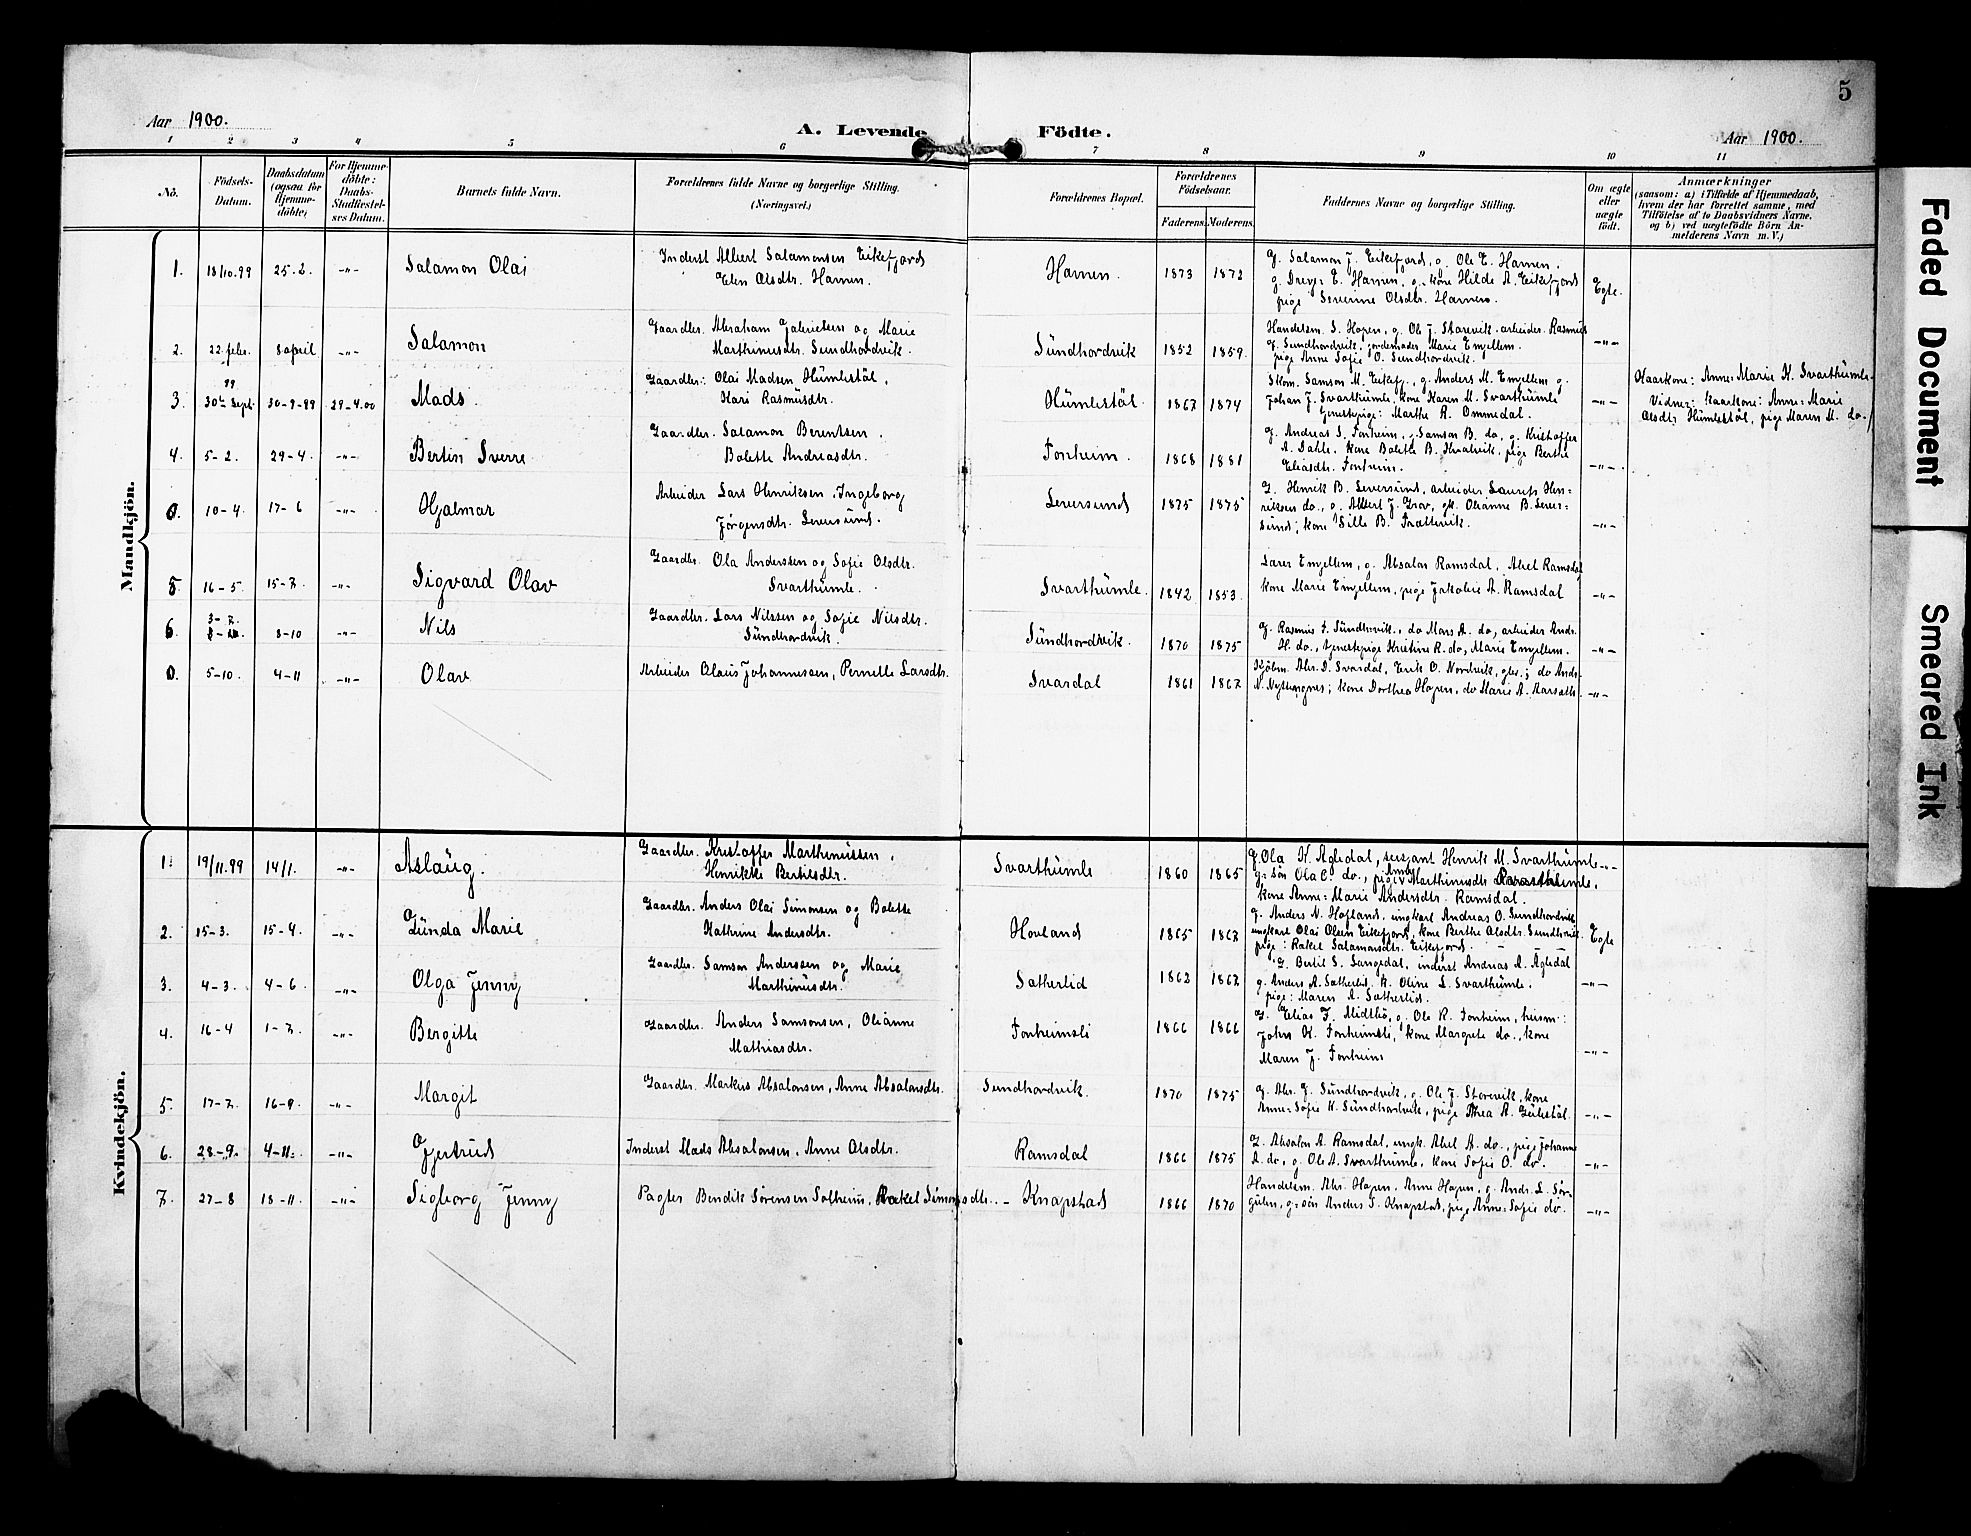 5
Aar 1900.
A. Levende Födte.
Aar 1900.
1 2 3 4 5 6 7 8 9 10 11
No.
Födsels-
Datum.
Daabsdatum
(ogsaa for
Hjemme-
döbte;
For Hjemme-
döbte:
Daabs-
Stadfæstel-
ses Datum.
Barnets fulde Navn.
Forældrenes fulde Navne og borgerlige Stilling.
(Næringsvei.)
Forældrenes Bopæl.
Forældrenes
Födselsaar.
Faderens. Moderens.
Faddernes Navne og borgerlige Stilling.
Om ægte
eller
uægte
födt.
Anmærkninger
(saasom: a) i Tilfælde af Hjemmedaab,
hvem der har forrettet samme, med
Tilföielse af to Daabsvidners Navne.
og b) ved uægtefödte Börn An-
melderens Navn m. V.)
Mandkjön.
1. 18/10.99 25-2. -"- Salamon Olai
Inderst Albert Salamonsen Eikefjord
Elen Olsdtr. Hamen.
Hamen. 1873 1872
G. Salamon J. Eikefjord, g. Ole E. Hamen,
g. Drey: E. Hamen, g. kone Hilde A. Eikefjord
pige Severine Olsdtr. Hamen.
Egte.
2. 22 febr. 8 april -"- Salamon
Gaardbr. Abraham Gabrielsen og Marie
Marthinusdtr. Sundhordvik.
Sündhordvik 1852 1859.
Handelsm. S. Hopen, g. Ole J. Storevik, arbeider Rasmus
G. Sundhordvik, jordemoder Marie Emjellem.
pige Anne Sofie O. Sundhordvik.
-"-
3. 99 30te Sept. 30-9-99 29-4.00 Mads.
Gaardbr.: Olai Madsen Hümlestöl,
Kari Rasmusdtr.
Hümlestöl. 1867 1874
Skom. Samson M. Eikefj., g. Anders M. Emjellem g.
Johan J. Svarthumle, kone Karen M. Svarthumle
tjenestepige: Marthe R. Ommedal.
-"-
Kaarkone: Anne: Marie K. Svarthümle
Vidner: kaarkone: Anne: Marie
Olsdtr. Hümlestöl, pige Maren M. do.
4. 5-2. 29-4. -"- Bertin Sverre
Gaardbr. Salamon Berentsen,
Bolette Andreasdtr.
Fonheim. 1868 1881
G. Andreas S. Fonheim, g. Samson B. do, g. Kristoffer
A. Dahle, kone Bolette B. Hvalvik, pige Berthe
Eliasdtr. Fonheim.
-"-
0. 10-4. 17-6 -"- Hjalmar
Arbeider Lars Henriksen, Ingeborg
Jörgensdtr. Leversund.
Leversund 1875 1875
G. Henrik B. Leversund, arbeider Laurits Hen=
riksen do., g. Albert J. Grov, gk. Olianne B. Lever=
sund, kone Sille B.
-"-
5. 16-5. 15-7. -"- Sigvard Olav
Gaardbr. Ola Anderssen og Sofie Olsdtr.
Svarthümle.
Svarthümle. 1842 1853.
Lærer Emjellem, g. Absalon Ramsdal, Abel Ramsdal,
kone Marie Emjellem, pige Jakobie A. Ramsdal
-"-
6. 3-7. 8-10 -"- Nils
Gaardbr. Lars Nilssen og Sofie Nilsdtr.
Sündhordvik.
Sündhordvik. 1870 1875
G. Rasmus J. Sündhrvik, do Mons A. do, arbeider Andr.
H. do., tjenestepige Kristine R. do, Marie Emjellem.
-"-
0. 5-10. 4-11 -"- Olav
Arbeider Olaus Johannessen, Pernelle Larsdtr.
Svardal 1861 1867
Kjöbm. Abr. D. Svardal, Erik O. Nordvik, gbr.; do Andr.
N. kone Dorthea Hopen, do Marie A.
-"-
Kvindekjön.
1. 19/11.99 14/1. -"- Aslaug.
Gaardbr. Kristoffer Marthinussen,
Henrikke Bertilsdtr.
Svarthümle 1860 1865
G. Ola K. Agledal, sersjant Henrik M. Svarthümle
g: sön Ola C. do., pige Anna Marthinusdtr. Svarthümle,
kone Anne: Marie Andersdtr. Ramsdal.
-"-
2. 15-3. 15-4. -"- Günda Marie
Gaardbr. Anders Olai Simonsen og Bolette
Kathrine Andersdtr.
Hovland 1865 1867
G. Anders N. Hofland, ungkarl Andreas O. Sundhordvik
ungkarl Olai Olsen Eikefjord, kone Berthe Olsdtr. Sundhrvik
pige: Rakel Salamonsdtr. Eikefjord.
Egte
3. 4-3. 4-6. -"- Olga Jenny
Gaardbr. Samson Anderssen og Marie
Marthinusdtr.
Satherlid 1862 1867
G. Bertil S. Langedal, inderst Andreas A. Agledal
g. Anders A. Satherlid, k. Oline L. Svarthümle.
pige: Maren A. Satherlid.
-"-
4. 16-4 1-7. -"- Bergitte
Gaardbr. Anders Samsonsen, Olianne
Mathiasdtr.
Fonheimsli 1866 1866
G. Elias F. Midtbö, g. Ole R. Fonheim, husm:
Johs K. Fonheimsli, kone Margrete do., kone
Maren J. Fonheim
-"-
5. 17-7. 16-9. -"- Margit
Gaardbr. Markus Absalonsen, Anne Absalonsdtr.
Sundhordvik 1870 1875
G. Abr. G. Sündhordvik, g. Ole J. Storevik, kone
Anne: Sofie K. Sündhordvik, pige Thea A. Gülestöl.
-"-
6. 28-9. 4-11. -"- Gjertrud
Inderst Mads Absalonsen, Anne Olsdtr.
Ramsdal 1866 1875
G. Absalon A. Ramsdal, ungk. Abel A. do., pige Johanne
A. do, g. Ole A. Svarthümle, kone Sofie O. do.
-"-
7. 27-8 18-11. -"- Sigborg Jenny
Pagter Bendik Sörensen Solheim, Rakel Simonsdtr.
Knapstad 1866 1870
Handelsm. Abr. Hopen, Anne Hopen, g. Andr. L. Sör-
gulen, g: sön Anders S. Knapstad, pige Anne: Sofie do.
-"-
Faded Document
Smeared Ink